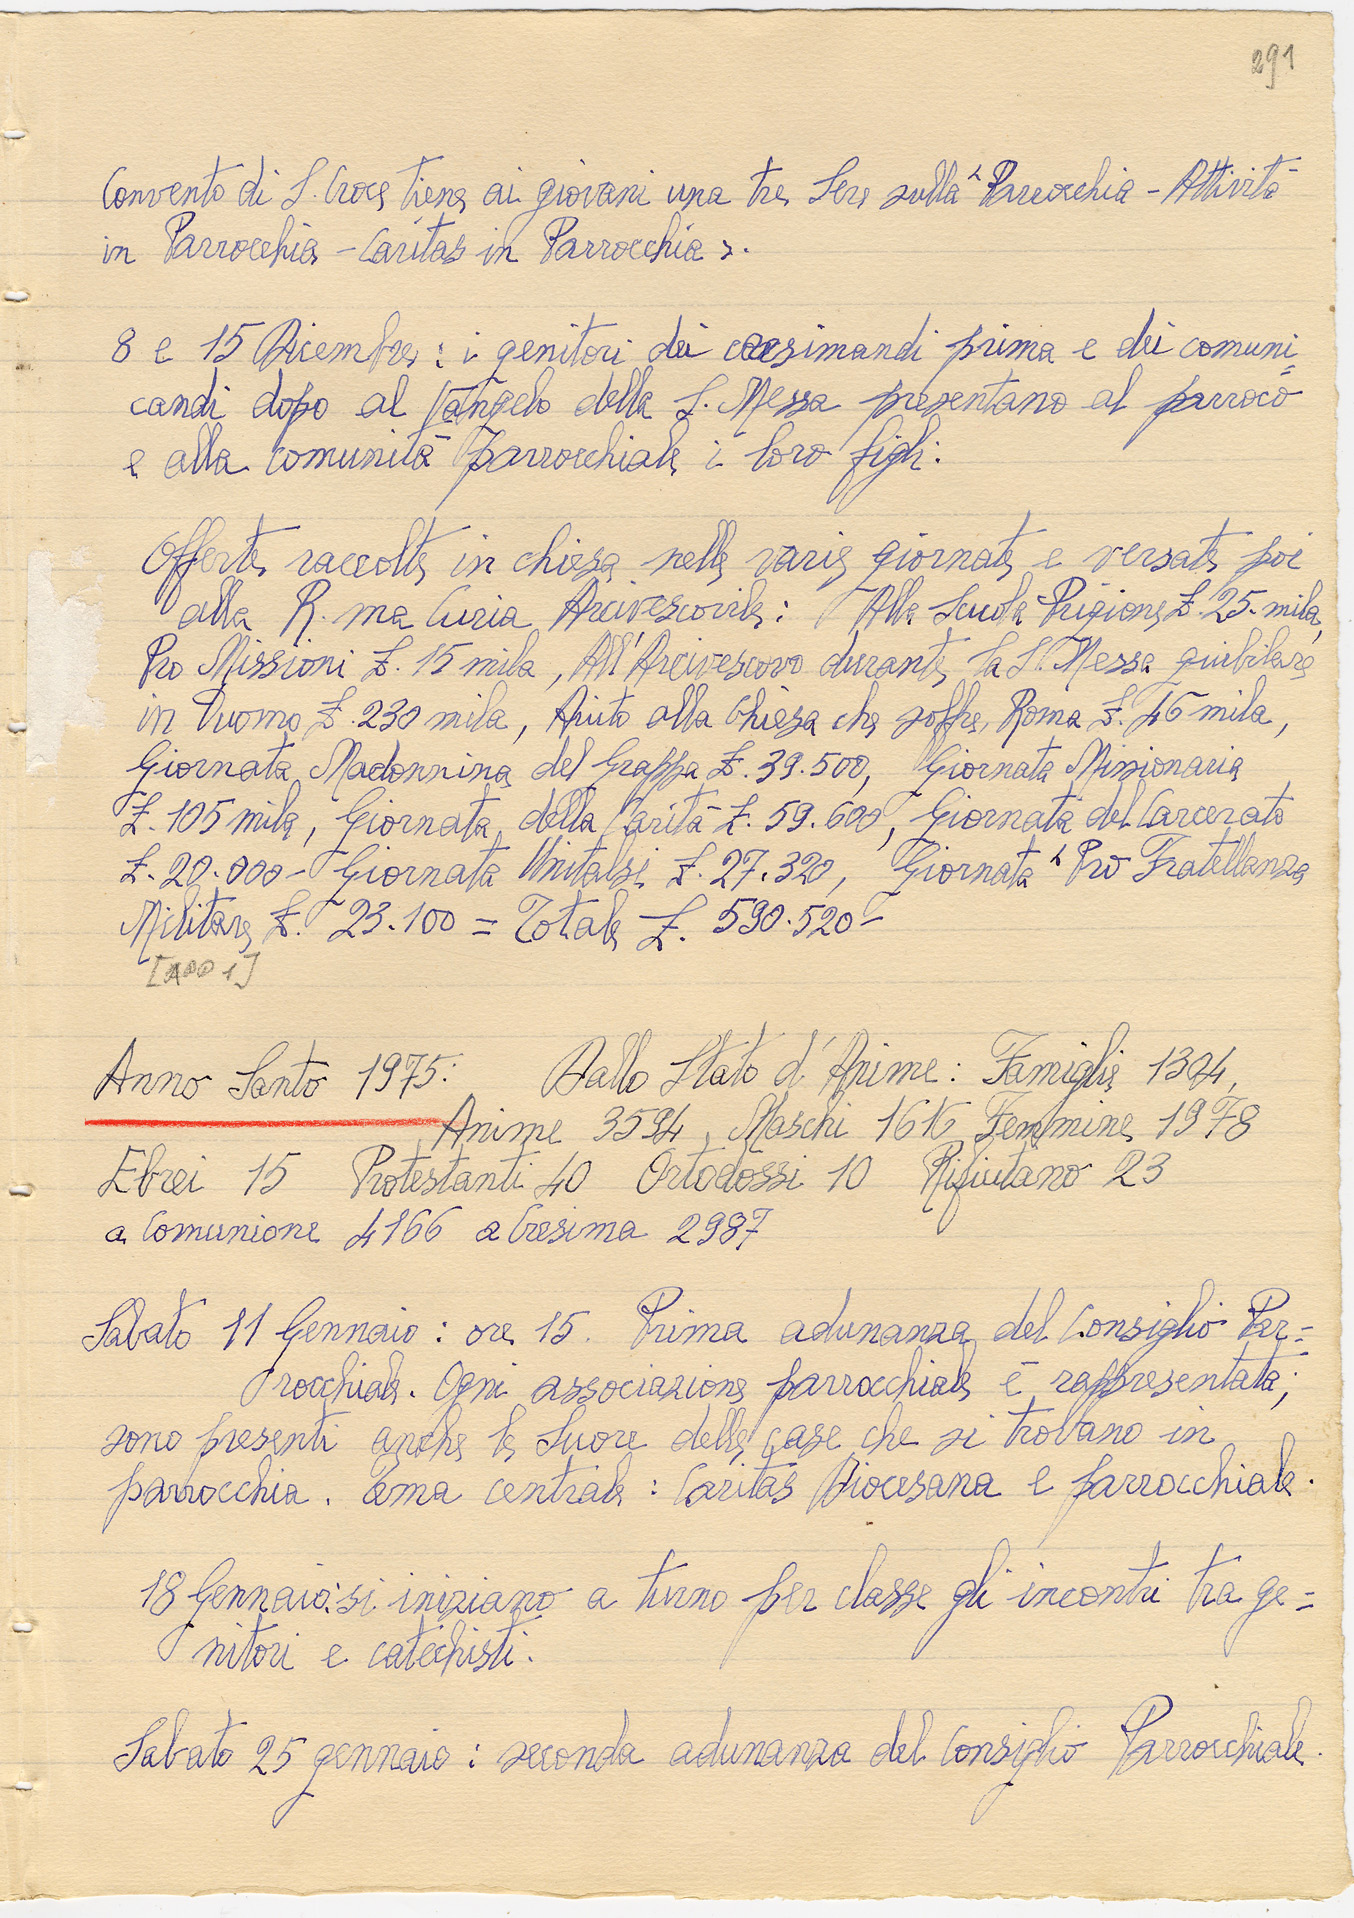 291
Convento di S. Croce tiene ai giovani una tre Sere sulla "Parrocchia - Attività
in Parrocchia - Caritas in Parrocchia ".
8 e 15 Dicembre: i genitori dei cresimandi prima e dei comuni=
candi dopo al Vangelo della S. Messa presentano al parroco
e alla comunità parrocchiale i loro figli.
Offerte raccolte in chiesa nelle varie giornate e versate poi
alla R.ma Curia Arcivescovile: Alla Scuola Prigione £. 25. mila,
Pro Missioni £. 15 mila, All'Arcivescovo durante la S. Messa giubilare
in Duomo £. 230 mila, Aiuto alla Chiesa che soffre, Roma £. 46 mila,
Giornata Madonnina del Grappa £. 39.500, Giornata Missionaria
£. 105 mila, Giornata della Carità £. 59.600, Giornata del Carcerato
£. 20.000 - Giornata Unitalsi £. 27.320, Giornata " Pro Fratellanza
Militare £. 23.100 = Totale £. 590.520 -
[ADD 1]
Anno Santo 1975: Dallo Stato d'Anime: Famiglie 1304,
Anime 3594, Maschi 1616 Femmine 1978
Ebrei 15 Protestanti 40 Ortodossi 10 Rifiutano 23
a Comunione 4166 a Cresima 2987
Sabato 11 Gennaio: ore 15. Prima adunanza del Consiglio Par=
rocchiale. Ogni associazione parrocchiale è rappresentata;
sono presenti anche le Suore delle case che si trovano in
parrocchia. Tema centrale: Caritas Diocesana e parrocchiale.
18 Gennaio: si iniziano a turno per classe gli incontri tra ge=
nitori e catechisti.
Sabato 25 gennaio: seconda adunanza del Consiglio Parrocchiale.